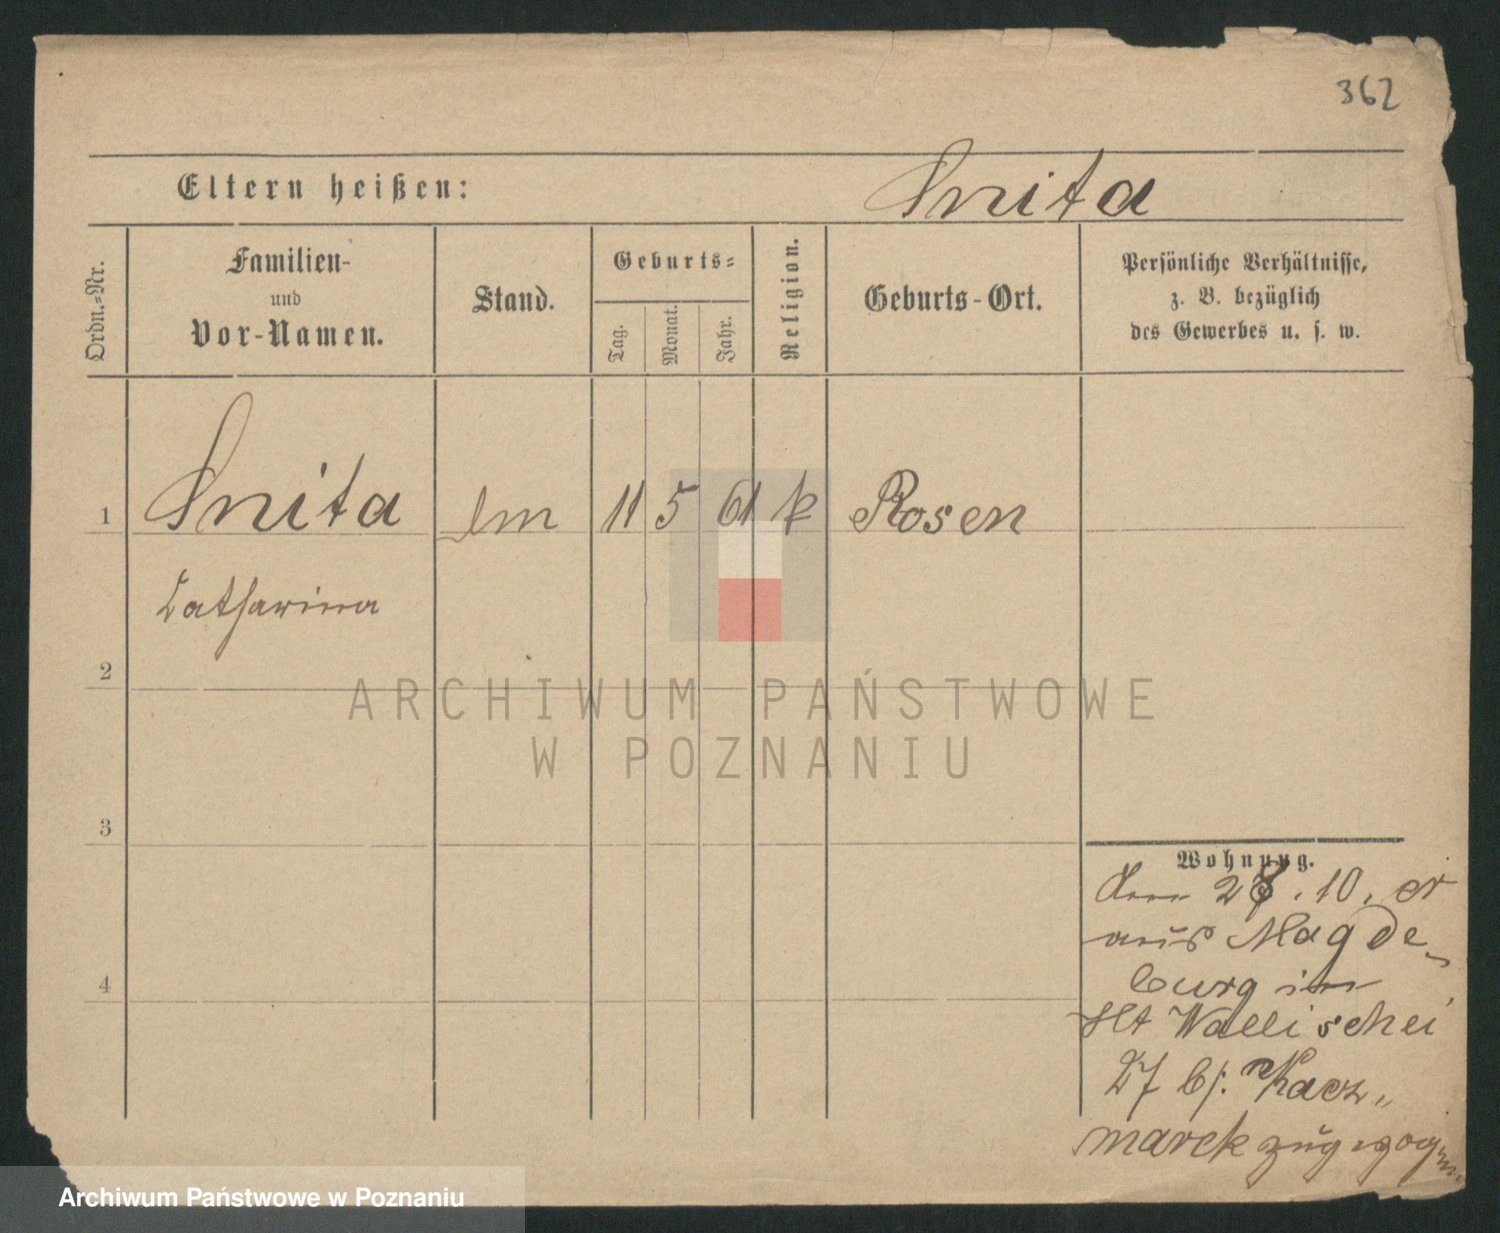 362
Eltern heißen: Snita
Ordn.-Nr.
Familien-
und
Vor-Namen.
Stand.
Geburts-
Tag.
Monat.
Jahr.
Religion.
Geburts-Ort.
Persönliche Verhältnisse,
z. B. bezüglich
des Gewerbes u. s. w.
1 Snita 11 5 61 k Rosen
Catharina
2
3
4
Wohnung.
10. cr
aus Magde-
burg in
Wallischei
27 b/. Kacz-
marek zugezogen
ARCHIWUM PAŃSTWOWE
W POZNANIU
Archiwum Państwowe w Poznaniu